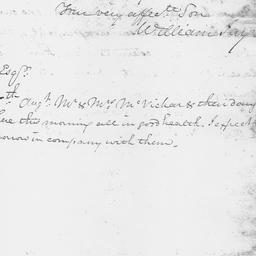 Your very affectte Son
William Jay
Esqr.
th Augt. Mr. & Mrs. McVickar & their daug
here this morning all in good health. I expect
orrow in company with them.